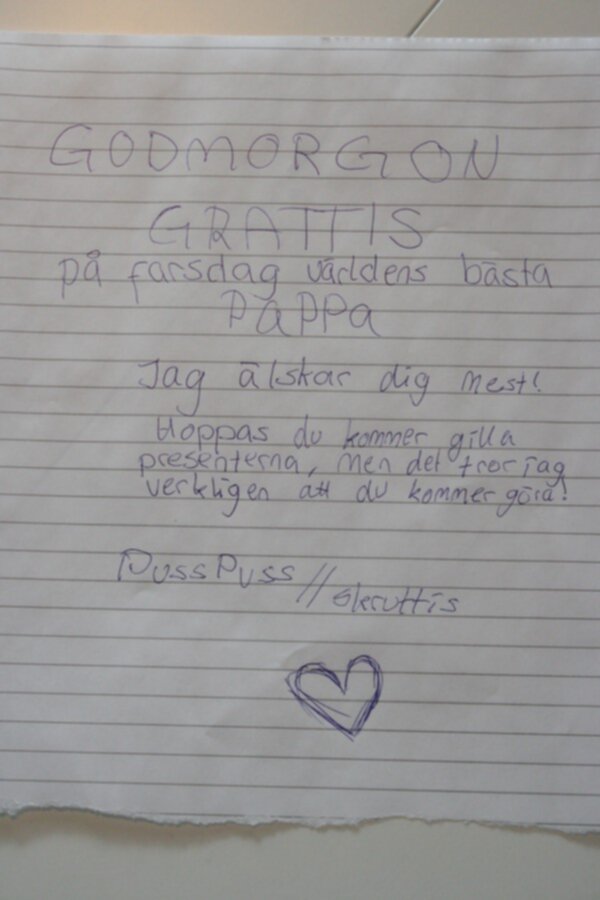 GODMORGON
GRATTIS
på farsdag världens bästa
PAPPA
Jag älskar dig mest!
Hoppas du kommer gilla
presenterna, men det tror jag
verkligen att du kommer göra!
Puss Puss // Skruttis